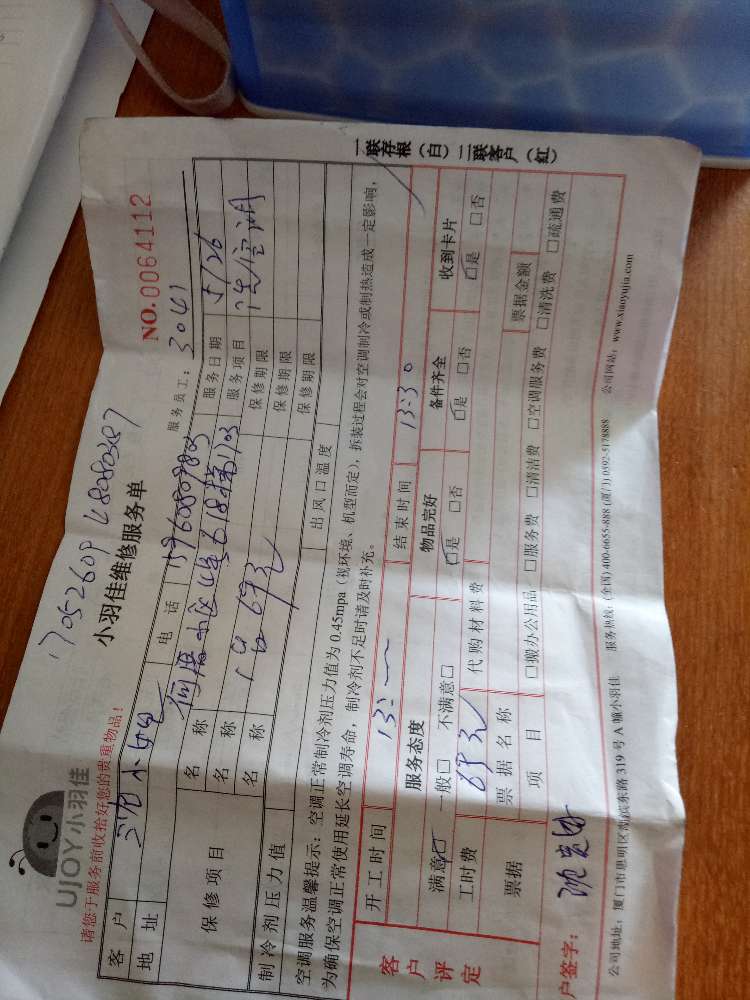 17052609 48080387
UJOY小羽佳
小羽佳维修服务单
NO.0064112
请您于服务前收拾好您的贵重物品!
服务员工: 3041
客户 小姐 电话 服务日期 5/26
地址 服务项目 洗空调
保修项目 名称 保修期限
名称 1台 69元 保修期限
名称 保修期限
制冷剂压力值 出风口温度
空调服务温馨提示:空调正常制冷剂压力值为 0.45mpa(视环境、机型而定),拆装过程会对空调制冷或制热造成一定影响,
为确保空调正常使用延长空调寿命,制冷剂不足时请及时补充。
开工时间 结束时间 13:30
客户评定 服务态度 物品完好 备件齐全 收到卡片
满意□ 一般□ 不满意□ □是 □否 □是 □否 □是 □否
工时费 69元 代购材料费
票据 票据名称 票据金额
项目 □搬办公用品 □服务费 □清洁费 □空调服务费 □清洗费 □疏通费
户签字:
公司地址:厦门市思明区 东路 319 号 A 幢小羽佳 服务热线:(全国)400-6655-888 (厦门) 0592-5178888 公司网站:www.xiaoyujia.com
一联存根(白)二联客户(红)